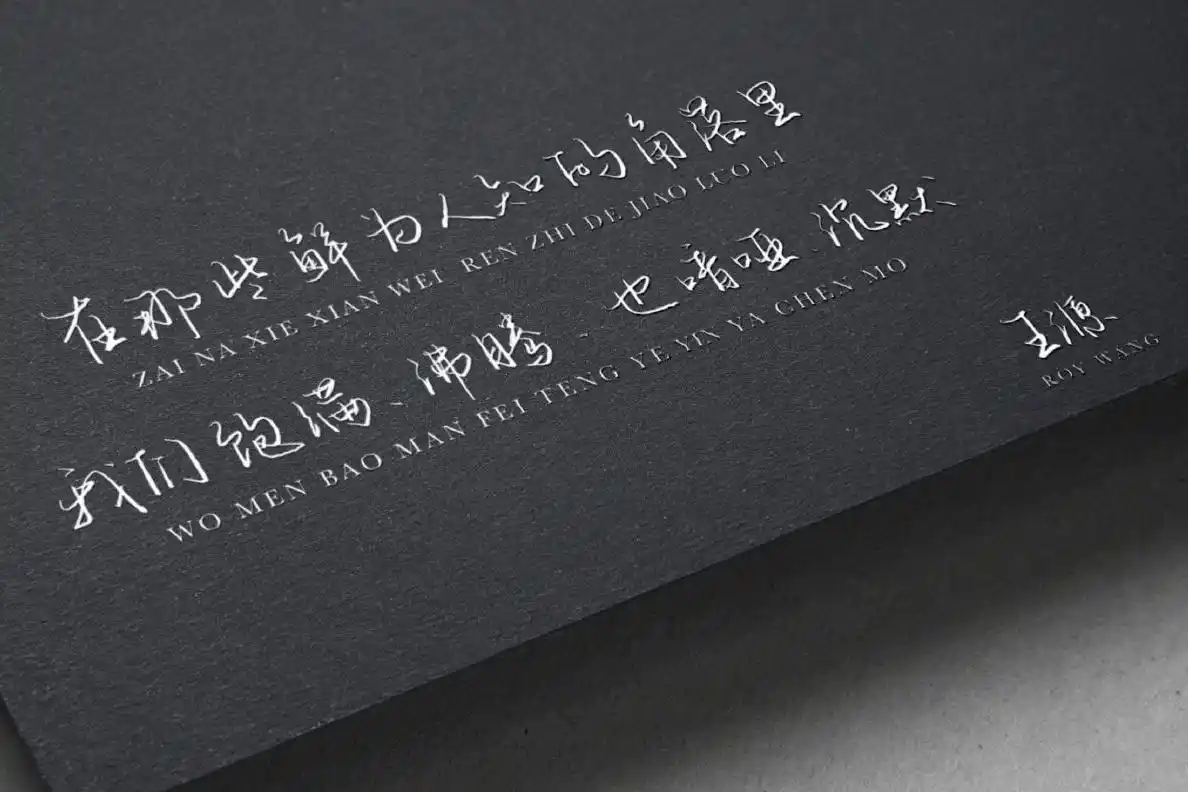 在那些鲜为人知的角落里
ZAI NA XIE XIAN WEI REN ZHI DE JIAO LUO LI
我们饱满、沸腾、也喑哑、沉默
WO MEN BAO MAN FEI TENG YE YIN YA CHEN MO
王源
ROY WANG